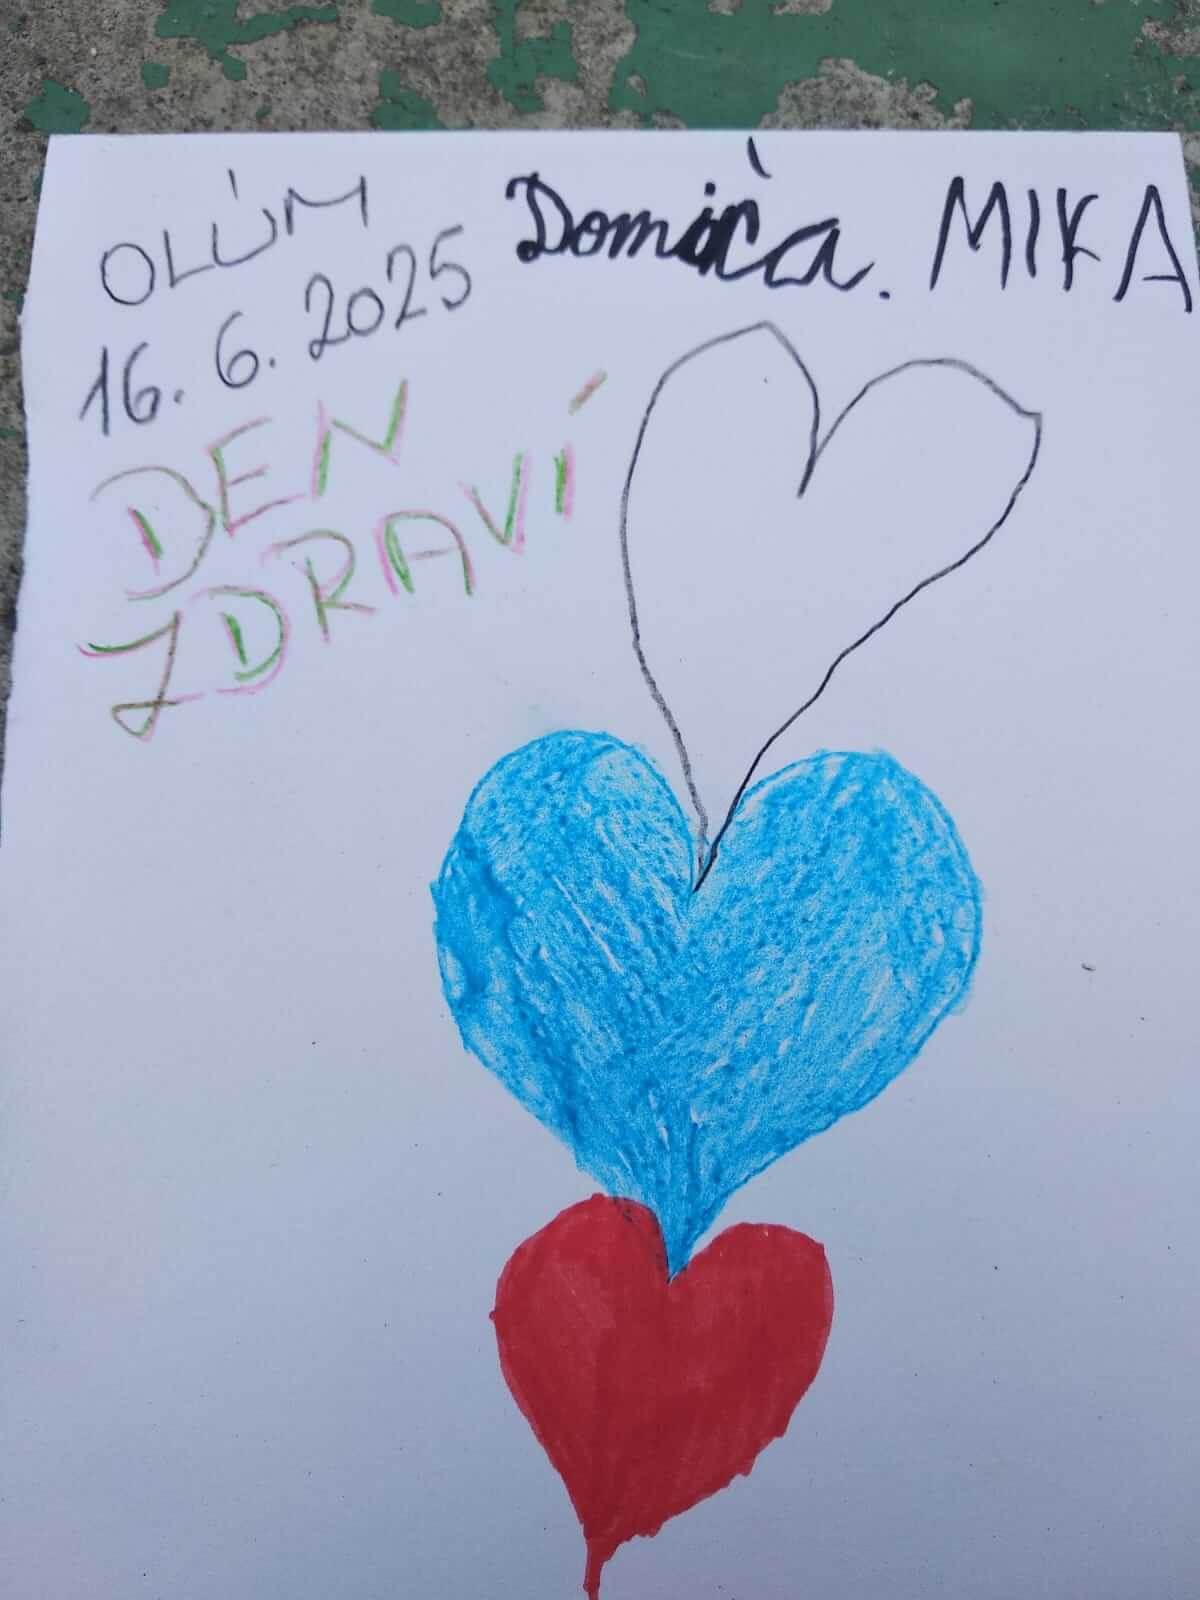 OLÚM
16. 6. 2025
DEN
ZDRAVÍ
MIKA